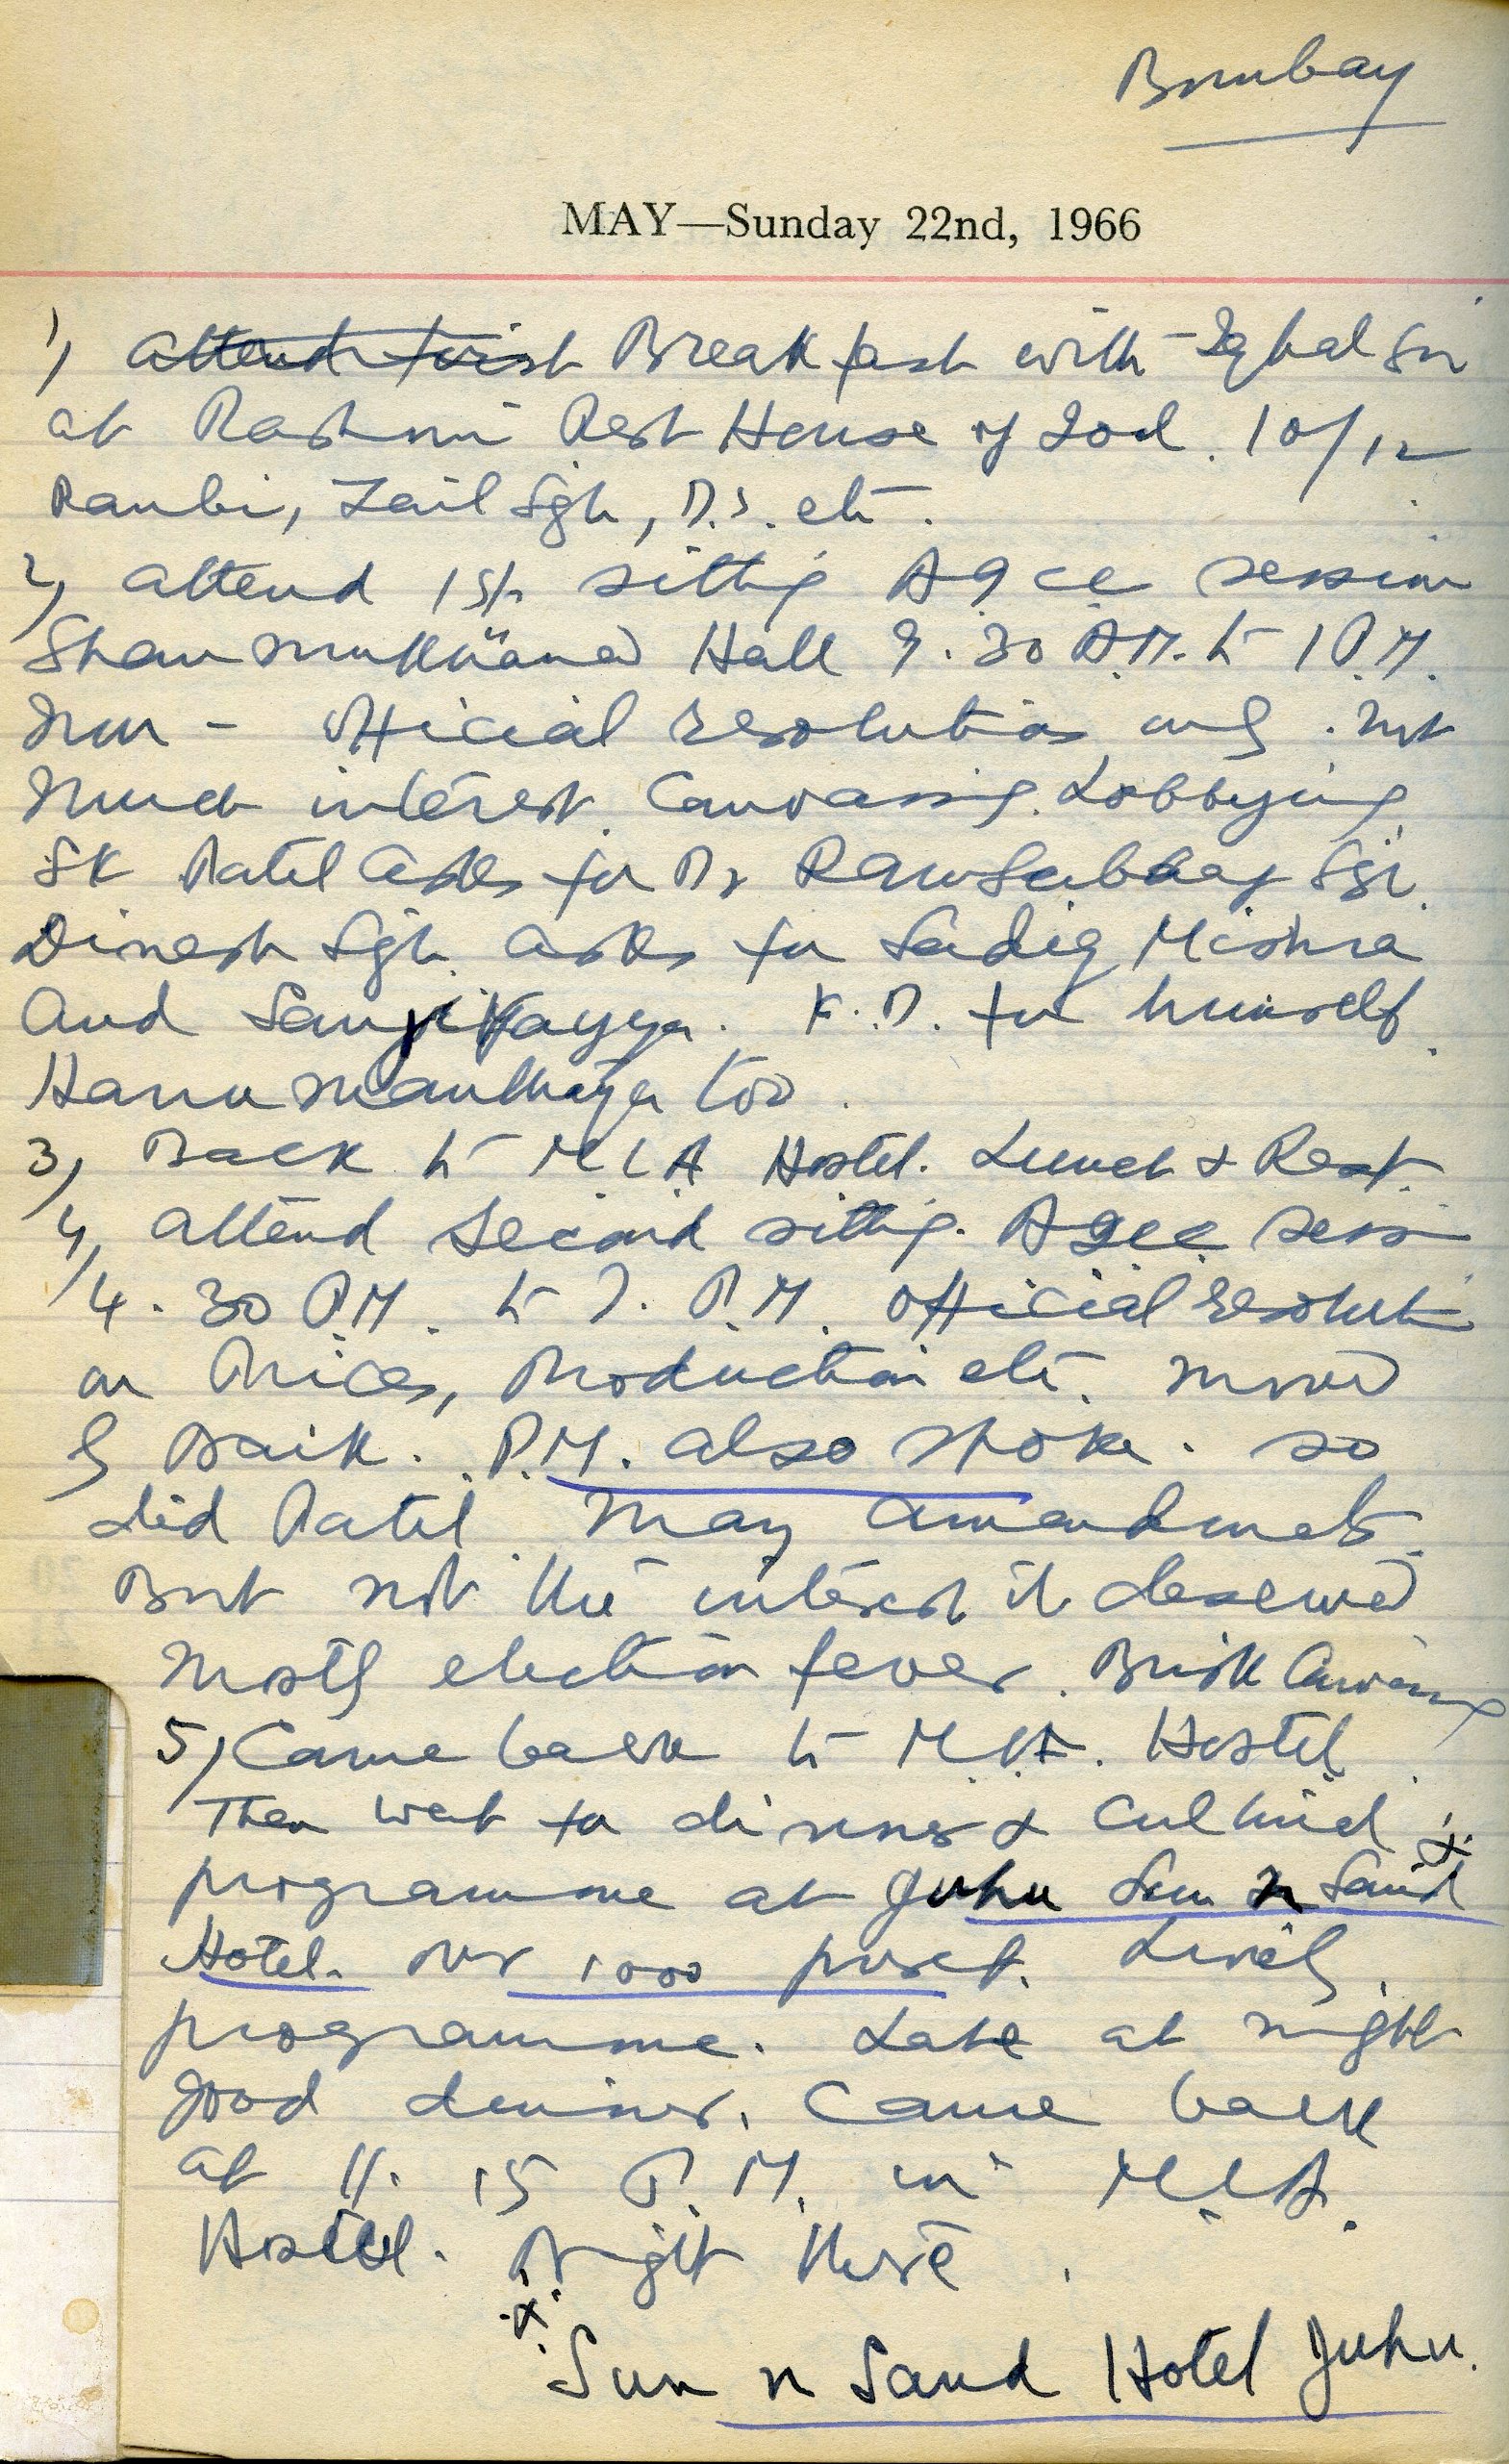 Bombay
MAY—Sunday 22nd, 1966
1) attend first Breakfast with Iqbal Sgh
at Rest House of 10/12
Zail Sgh, etc.
2) attend 1st sitting AICC session
Shanmukhanand Hall 9.30 A.M. to 1 P.M.
Non-official resolutions only. Not
much interest. Canvassing. Lobbying.
SK Patil asks for Dr Ramsubhag Sgh.
Dinesh Sgh. asks for Sadiq, Mishra
and Sanjivayya. K.D. for himself.
Hanumanthaiya too.
3) Back to MLA Hostel. Lunch & Rest.
4) attend second sitting. AICC sess
4.30 P.M. to 7. P.M. official resolut
on Prices, Production etc. moved
by Naik. P.M. also spoke. so
did Patil. Many amendments.
But not the interest it deserved
mostly election fever. Brisk Canvassing
5) Came back to MLA. Hostel.
Then went for dinner & Cultural x
programme at Juhu Sun n Sand
Hotel. over 1000 present. Lively
programme. Late at night
good dinner. Came back
at 11.15 P.M. in MLA.
Hostel. Night there.
x
Sun n Sand Hotel Juhu.